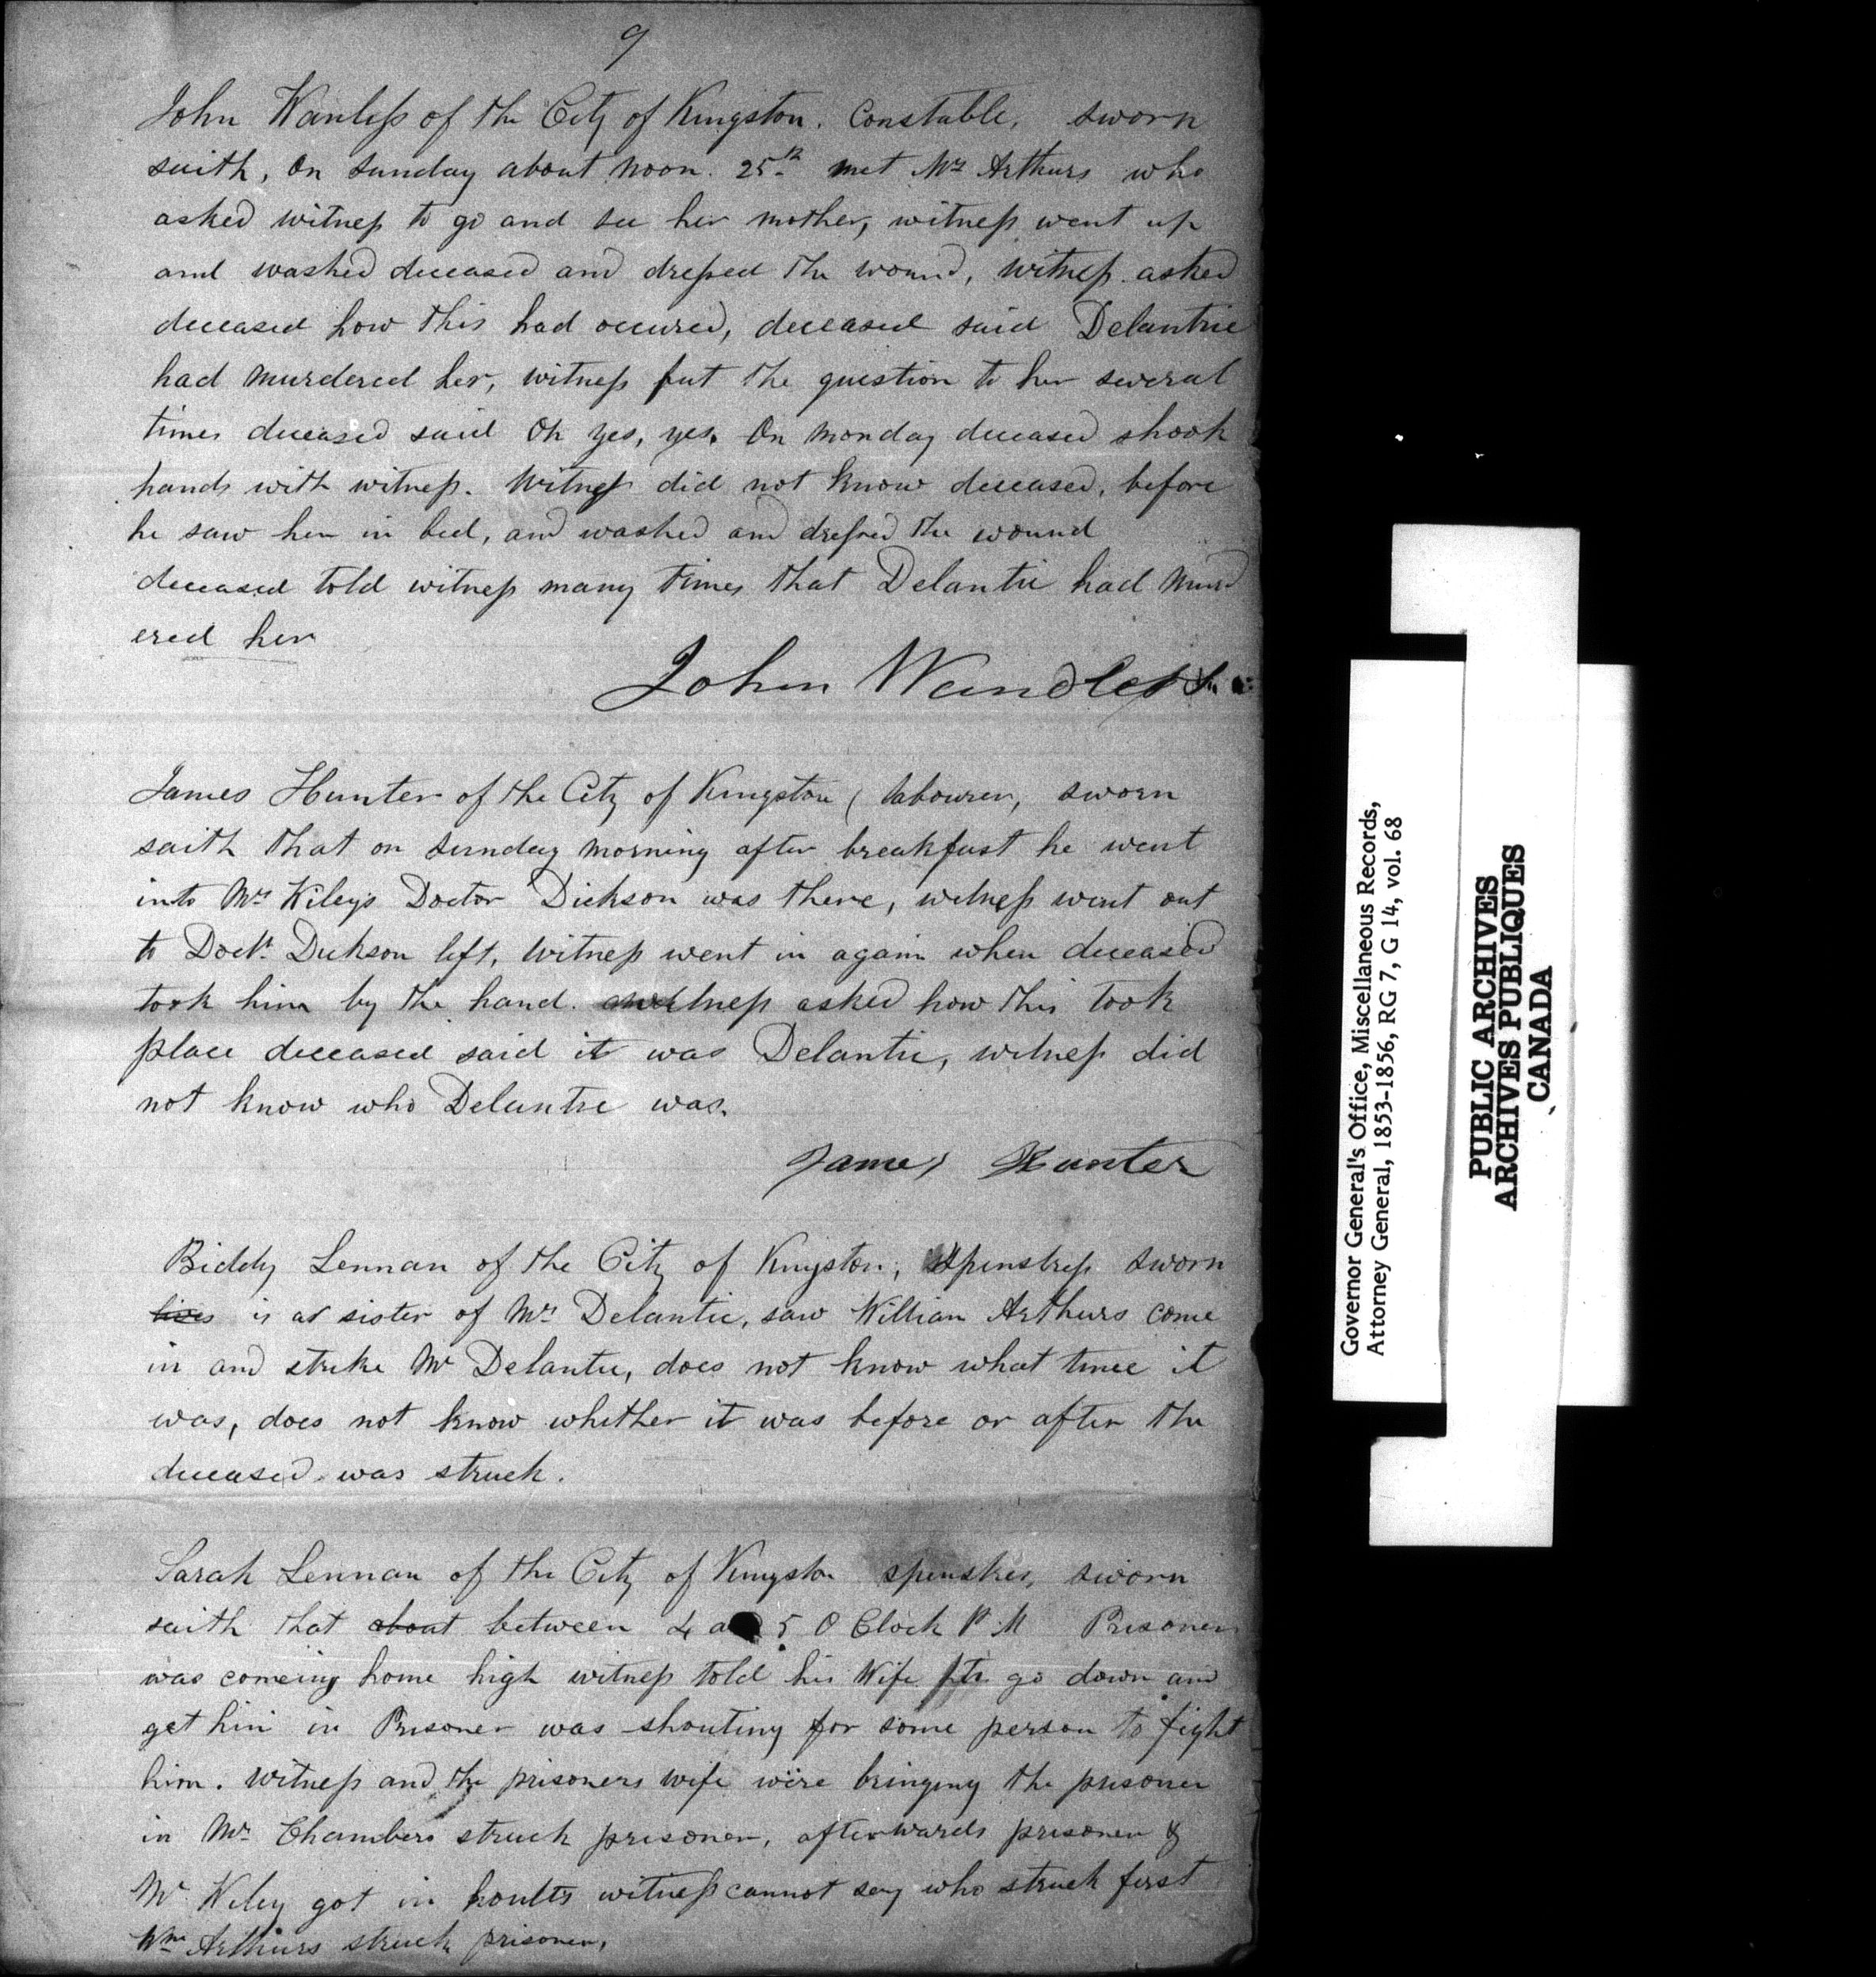 9
John Wanless of the City of Kingston. Constable, sworn
saith, On Sunday about noon. 25th met Mrs Arthurs who
asked witness to go and see her mother, witness went up
and washed deceased and dressed the wound, witness asked
deceased how this had occured, deceased said Delantie
had murdered her, witness put the question to her several
times deceased said Oh yes, yes. On Monday deceased shook
hands with witness. Witness did not know deceased, before
he saw her in bed, and washed and dressed the wound
deceased told witness many times that Delantie had Murd
ered her
John Wandless
James Hunter of the City of Kingston ( labourer, sworn
saith that on Sunday morning after breakfast he went
into Mrs Kileys Doctor Dickson was there, witness went out
to Doctr. Dickson left, Witness went in again when deceased
took him by the hand. witness asked how this took
place deceased said it was Delantie, witness did
not know who Delantie was.
James Hunter
Biddy Lennan of the City of Kingston, Spinstress sworn
lives is as sister of Mrs Delantie, saw William Arthurs come
in and strike Mr Delantie, does not know what time it
was, does not know whether it was before or after the
deceased was struck.
Sarah Lennan of the City of Kingston spinster, sworn
saith that about between 4 a 5 O Clock P.M Prisoner
was comeing home high witness told his Wife to go down and
get him in Prisoner was shouting for some person to fight
him. Witness and the prisoners wife were bringing the prisoner
in Mr. Chambers struck prisoner, afterwards prisoner &
Mr Kiley got in hoults witness cannot say who struck first
Wm Arthurs struck prisoner,
Governor General's Office, Miscellaneous Records,
Attorney General, 1853-1856, RG 7, G 14, vol. 68
PUBLIC ARCHIVES
ARCHIVES PUBLIQUES
CANADA